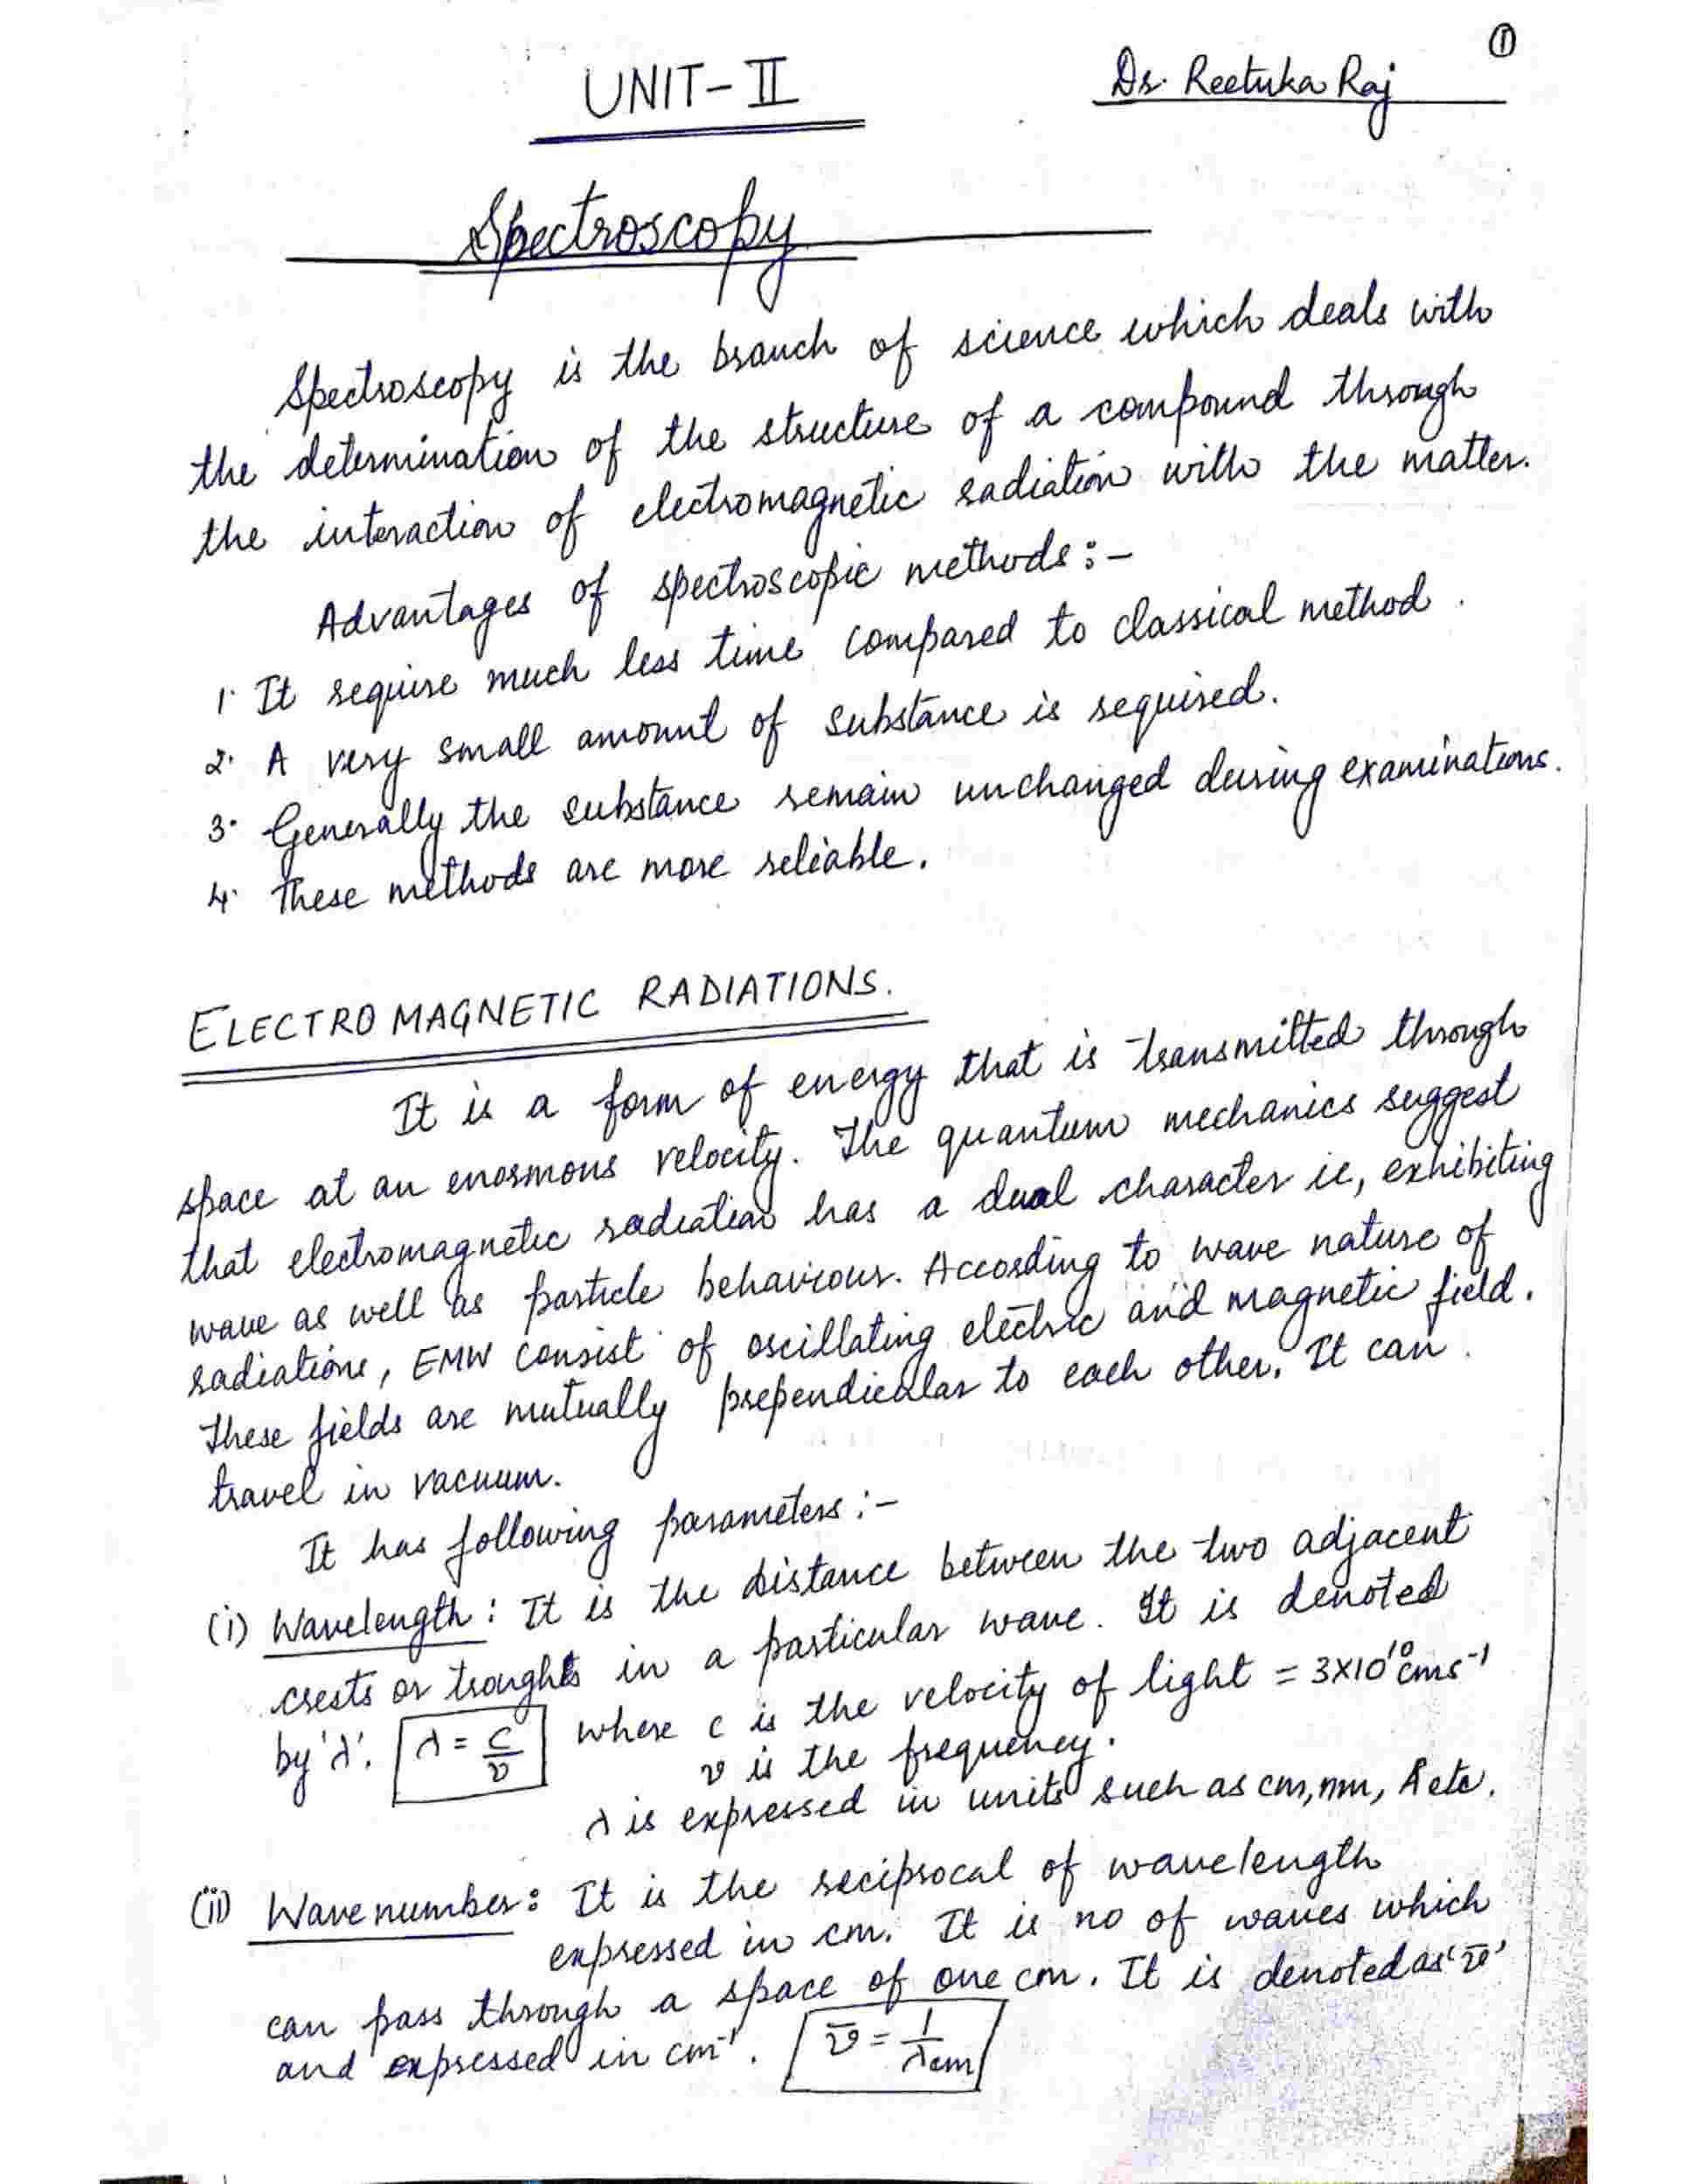 ①
UNIT-II
Dr. Reetuka Raj
Spectroscopy
Spectroscopy is the branch of science which deals with
the determination of the structure of a compound through
the interaction of electromagnetic radiation with the matter.
Advantages of spectroscopic methods:-
1. It require much less time compared to classical method.
2. A very small amount of substance is required.
3. Generally the substance remain unchanged during examinations.
4. These methods are more reliable.
ELECTROMAGNETIC RADIATIONS.
It is a form of energy that is transmitted through
space at an enormous velocity. The quantum mechanics suggest
that electromagnetic radiation has a dual character ie, exhibiting
wave as well as particle behaviour. According to wave nature of
radiations, EMW consist of oscillating electric and magnetic field.
These fields are mutually prependicular to each other. It can
travel in vacuum.
It has following parameters:-
(i) Wavelength: It is the distance between the two adjacent
crests or troughts in a particular wave. It is denoted
by 'λ'. λ = c/ν where c is the velocity of light = 3×10¹⁰cms⁻¹
ν is the frequency.
λ is expressed in units such as cm, nm, Å etc.
(ii) Wavenumber: It is the reciprocal of wavelength
expressed in cm. It is no of waves which
can pass through a space of one cm. It is denoted as 'ν̄'
and expressed in cm⁻¹. ν̄ = 1/λcm